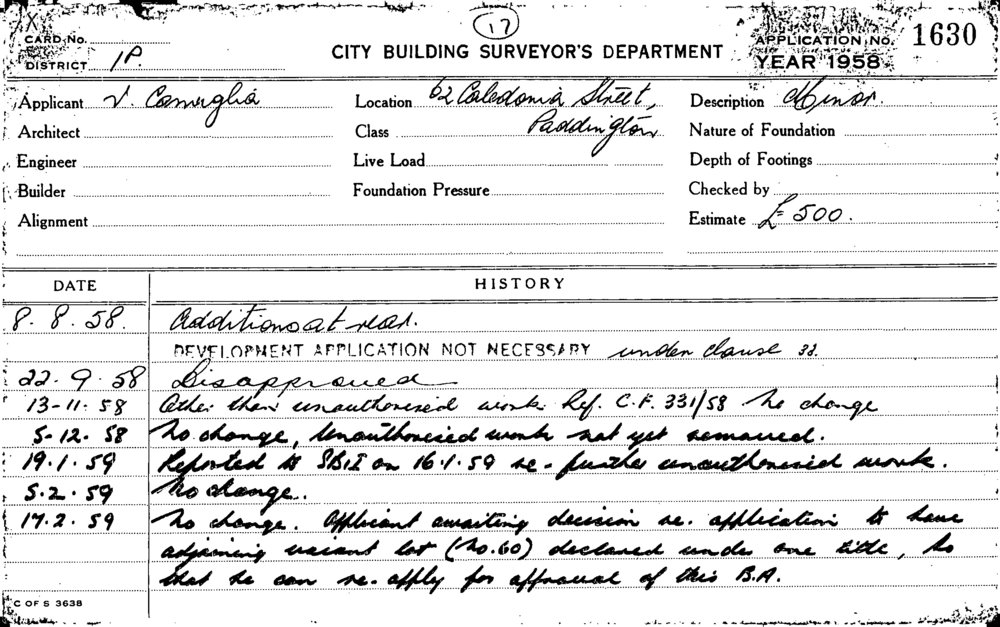 17
CARD No.
DISTRICT 1P.
CITY BUILDING SURVEYOR'S DEPARTMENT
APPLICATION No. 1630
YEAR 1958
Applicant V. Camuglia
Location 62 Caledonia Street, Paddington
Description Minor.
Architect
Class
Nature of Foundation
Engineer
Live Load
Depth of Footings
Builder
Foundation Pressure
Checked by
Alignment
Estimate £500.
DATE HISTORY
8. 8. 58. Additions at rear.
DEVELOPMENT APPLICATION NOT NECESSARY under clause 32.
22. 9. 58 Disapproved
13-11-58 Other than unauthorised work Ref. C.F. 331/58 no change
5-12-58 No change, Unauthorised work not yet removed.
19.1.59 Reported to SBI on 16.1.59 re-further unauthorised work.
5.2.59 No change.
17.2.59 No change. Applicant awaiting decision re. application to have
adjoining vacant lot (No.60) declared under one title, so
that he can re-apply for approval of this B.A.
C OF S 3638